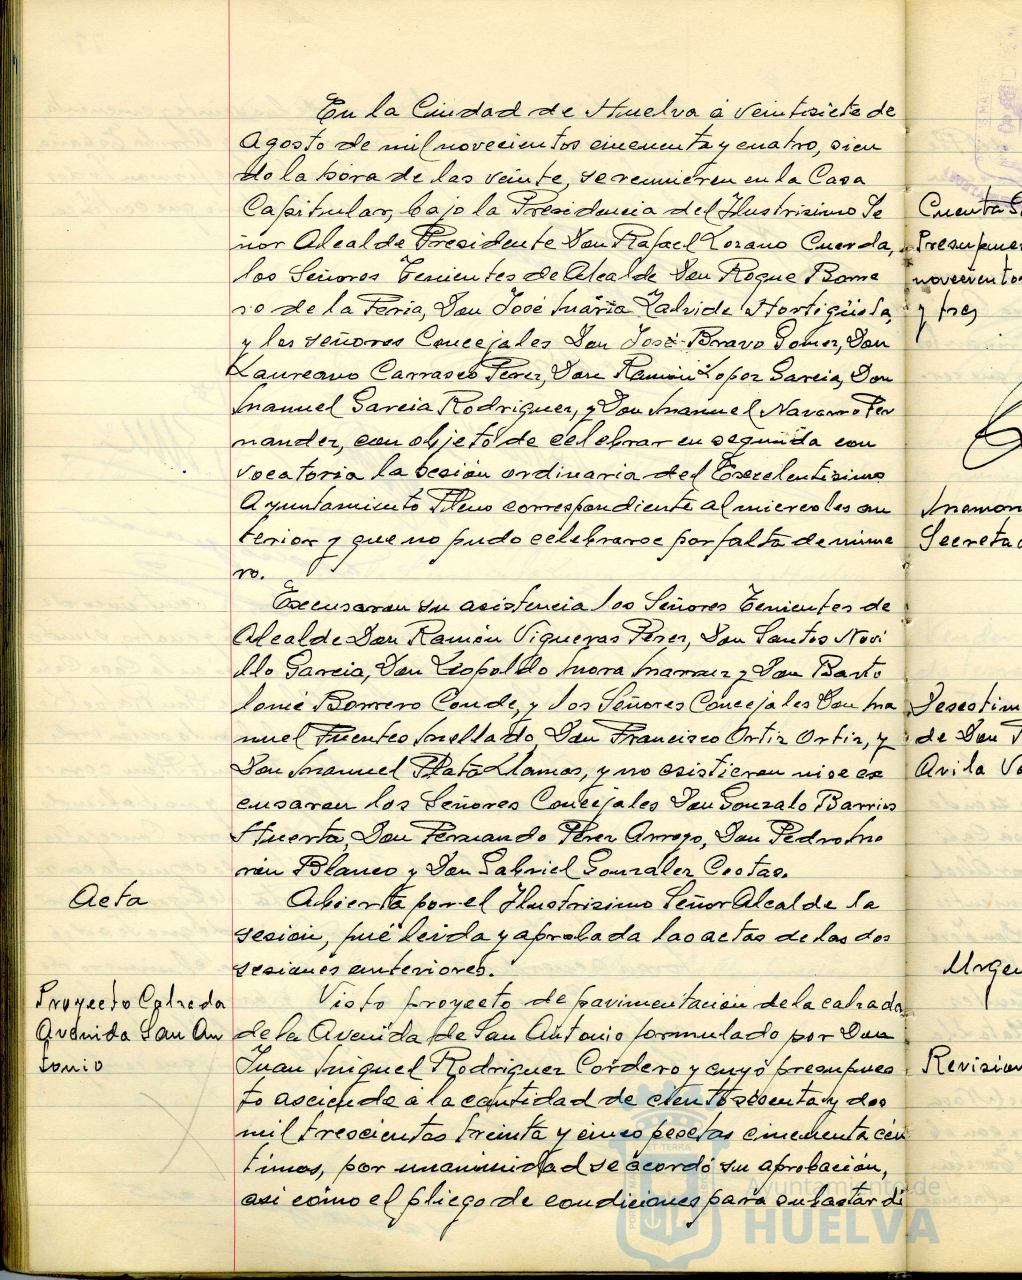 En la Ciudad de Huelva á veintisiete de
Agosto de mil novecientos cincuenta y cuatro, sien
do la hora de las veinte, se reunieron en la Casa
Capitular, bajo la Presidencia del Ilustrisimo Se
ñor Alcalde Presidente Don Rafael Lozano Cuerda,
los Señores Tenientes de Alcalde Don Roque Barre
ro de la Feria, Don José María Zalvide Hortigüela,
y los señores Concejales Don José Bravo Gomez, Don
Laureano Carrasco Perez, Don Ramón Lopez Garcia, Don
Manuel Garcia Rodriguez, y Don Manuel Navarro Fer
nandez, con objeto de celebrar en segunda con
vocatoria la sesión ordinaria del Excelentisimo
Ayuntamiento Pleno correspondiente al miercoles an
terior y que no pudo celebrarse por falta de nume
ro.
Excusaron su asistencia los Señores Tenientes de
Alcalde Don Ramón Vigueras Perez, Don Santos Novi
llo Garcia, Don Leopoldo Mora y Don Barto
lomé Borrero Conde, y los Señores Concejales Don Ma
nuel Fuentes Mellado, Don Francisco Ortiz Ortiz, y
Don Manuel Plata Llamas, y no asistieron ni se ex
cusaron los Señores Concejales Don Gonzalo Barrios
Huerta, Don Fernando Pérez Arroyo, Don Pedro Mo
rón Blanco y Don Gabriel Gonzalez Costas.
Acta
Abierta por el Ilustrisimo Señor Alcalde la
sesión, fué leida y aprobada las actas de las dos
sesiones anteriores.
Proyecto Calzada
Avenida San An
tonio
Visto proyecto de pavimentacion de la calzada
de la Avenida de San Antonio formulado por Don
Juan Miguel Rodriguez Cordero y cuyo presupues
to asciende á la cantidad de ciento sesenta y dos
mil trescientas treinta y cinco pesetas cincuenta cén
timos, por unanimidad se acordó su aprobación,
asi como el pliego de condiciones para subastar di
Cuenta
Presupues
novecientos
y tres
Secreta
Desestim
de Don
Avila
Urgen
Revision
Ayuntamiento de
HUELVA